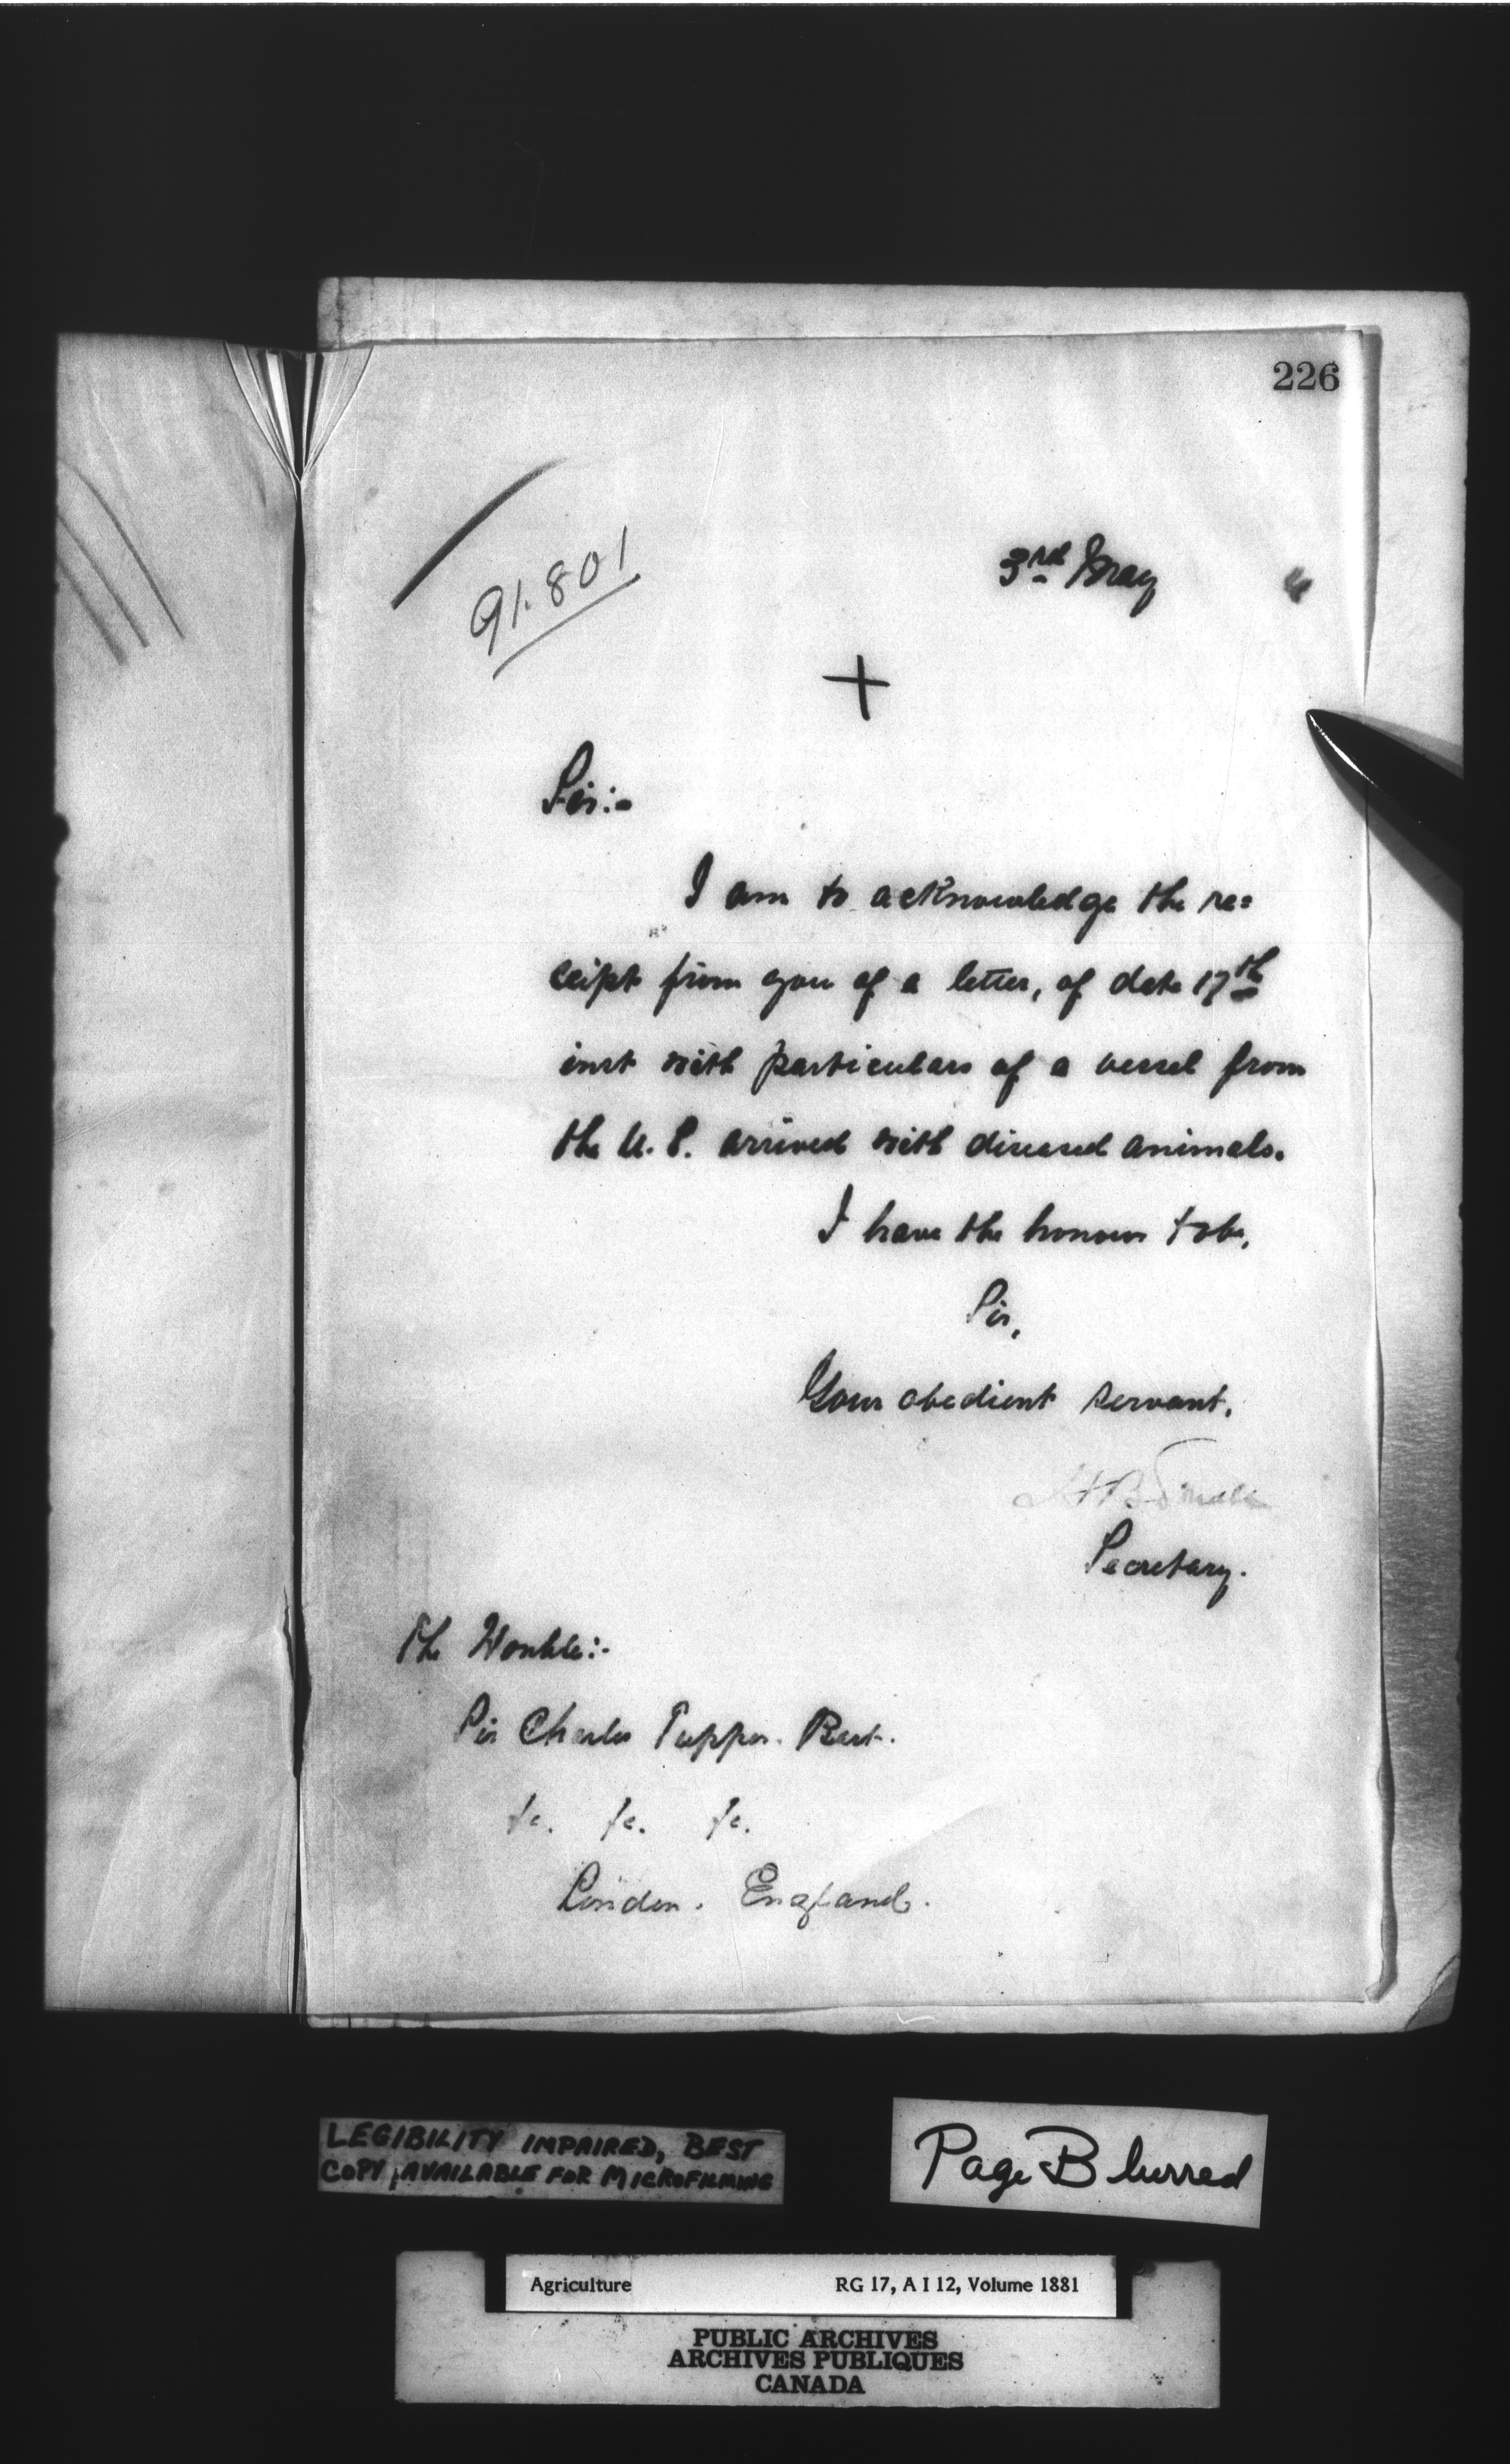 226
91.801
3rd May
+
Sir:-
I am to acknowledge the re=
ceipt from you of a letter, of date 17th
inst with particulars of a vessel from
the U.S. arrived with diseased animals.
I have the honour to be,
Sir,
Your obedient servant,
H B Small
Secretary.
The Honble:-
Sir Charles Tupper. Bart.
&c. &c. &c.
London. England.
LEGIBILITY IMPAIRED, BEST
COPY AVAILABLE FOR MICROFILMING
Page Blurred
Agriculture RG 17, A I 12, Volume 1881
PUBLIC ARCHIVES
ARCHIVES PUBLIQUES
CANADA